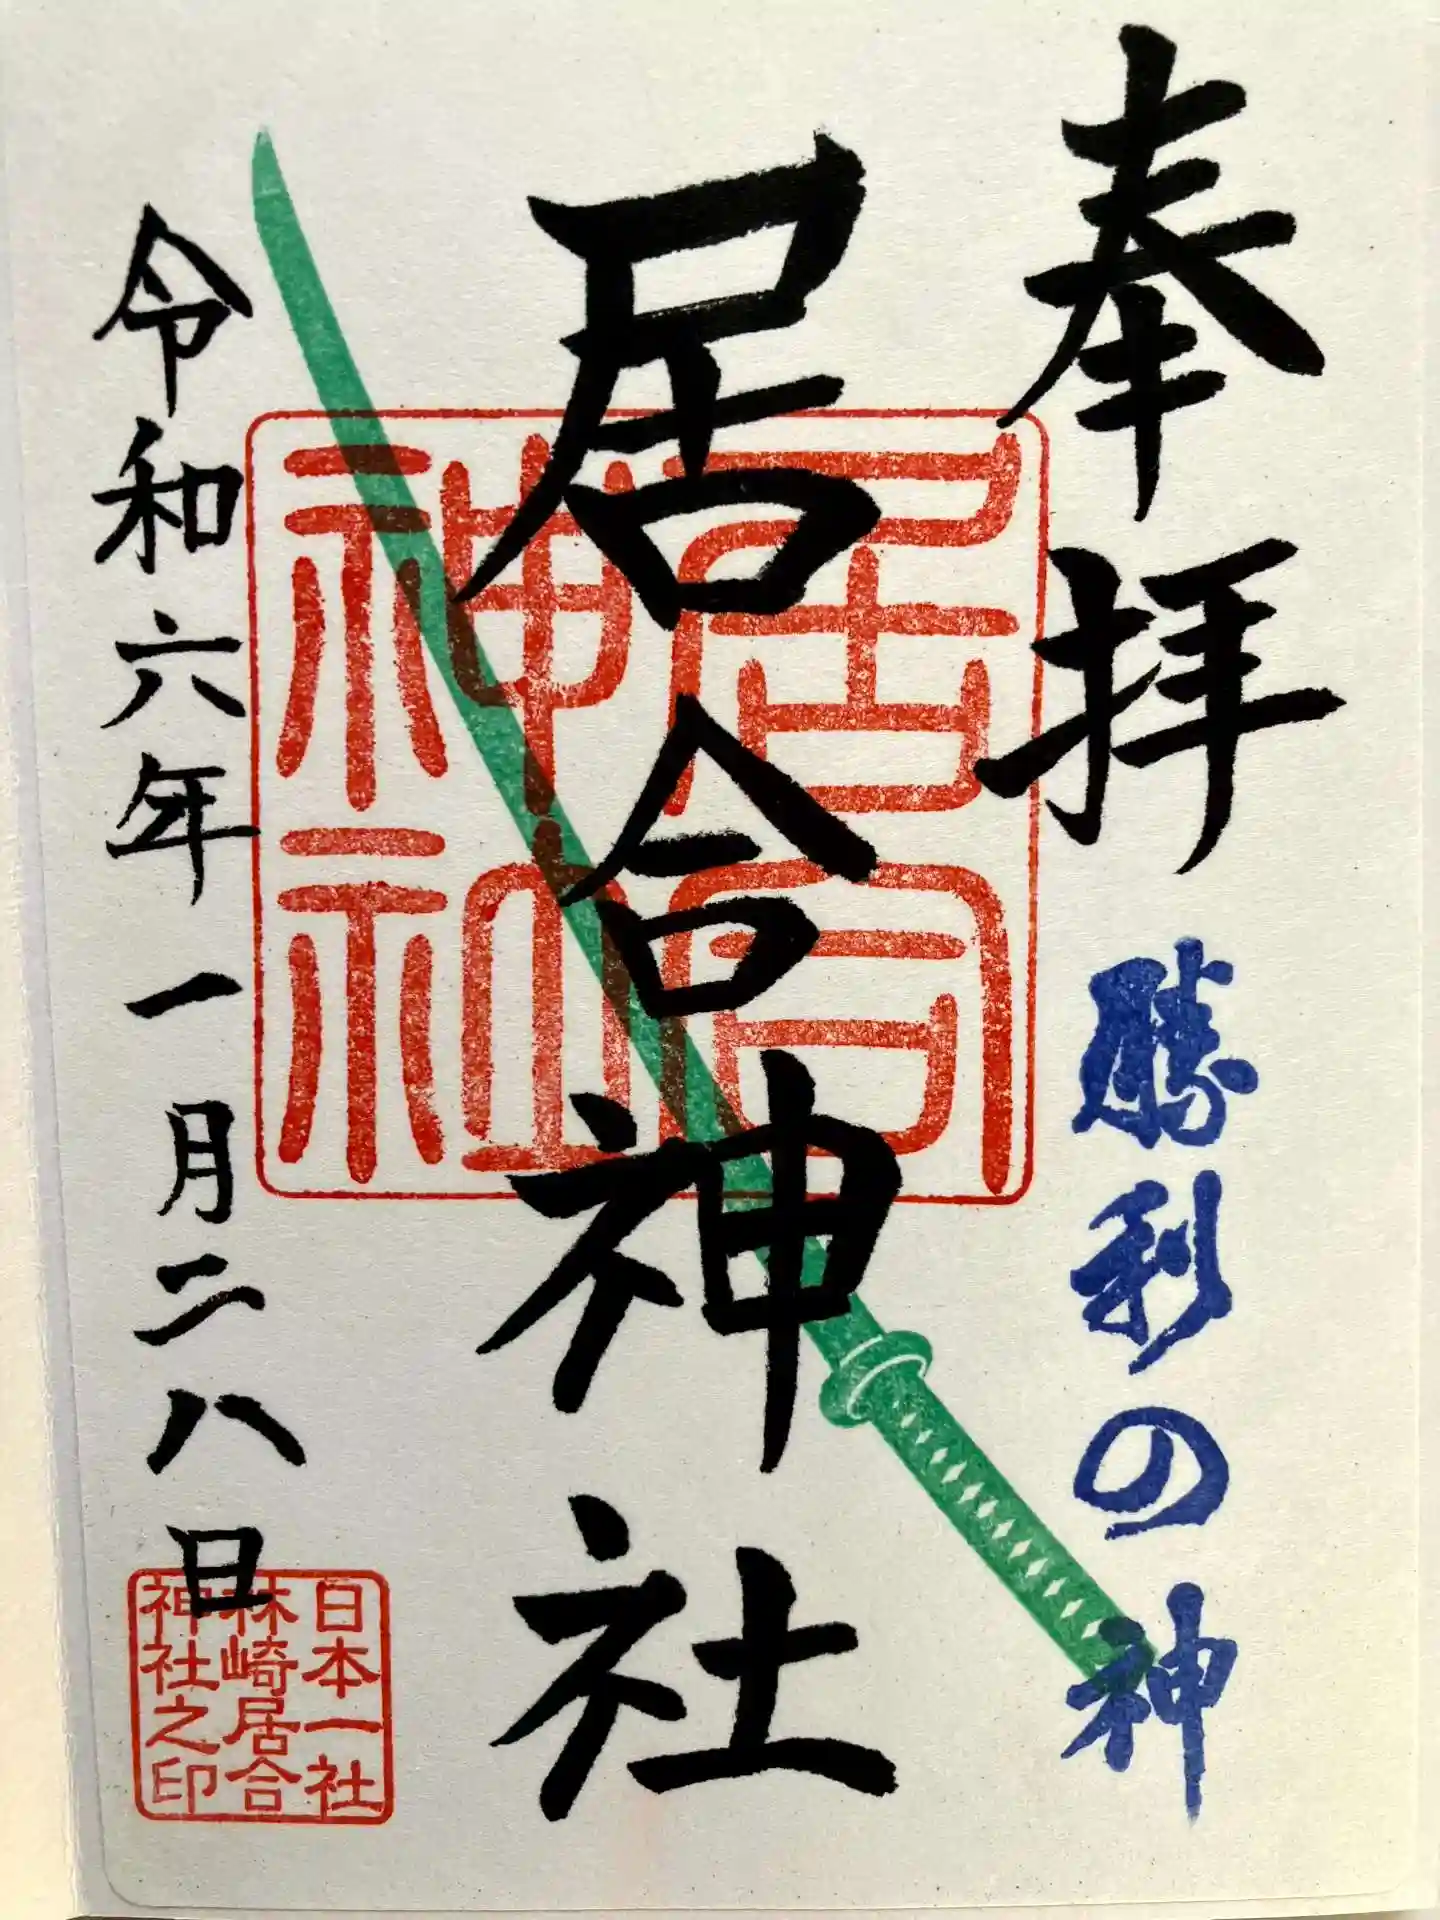 奉拝
勝利の神
居合神社
居合
神社
令和六年一月二八日
日本一社
林崎居合
神社之印